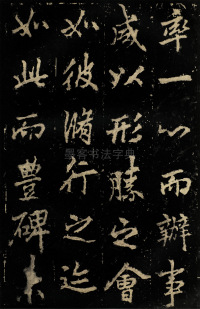 率一心而辦事
咸以形勝之會
如彼脩行之迹
如此而豐碑未
墨客书法字典